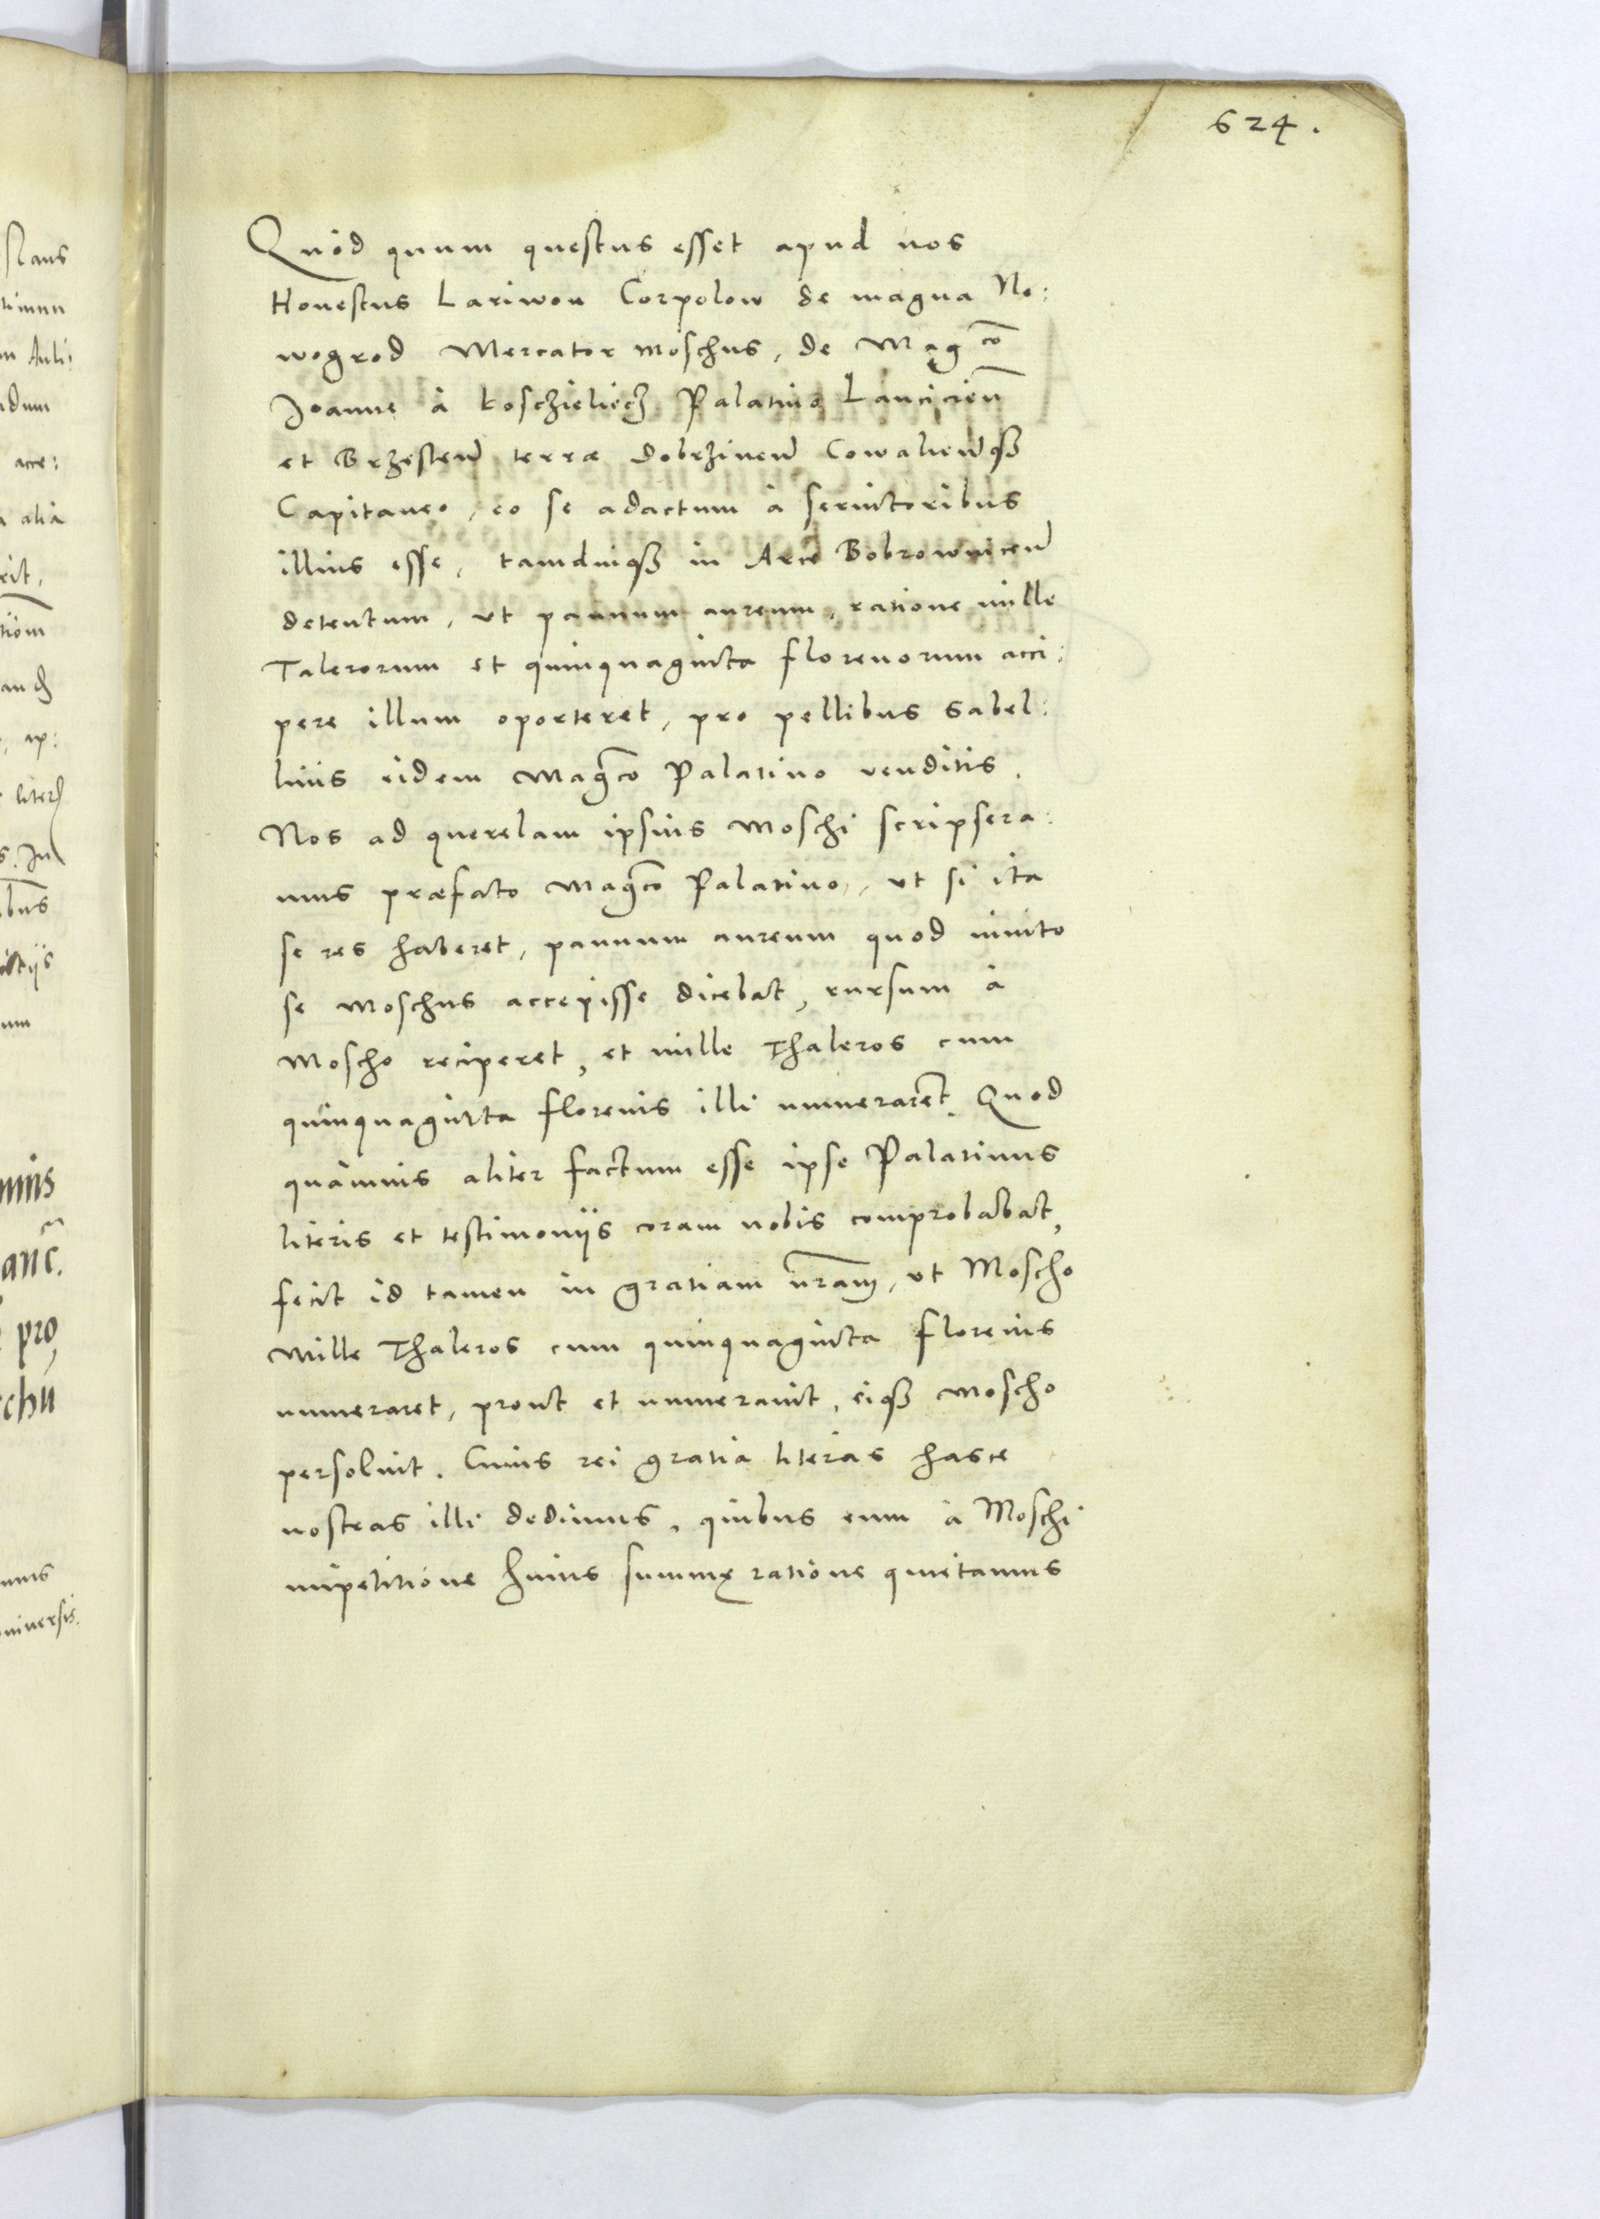 624.
Quòd quum questus esset apud nos
Honestus Lariwon Corpolow de magna No:
wogrod Mercator Moschus, de Mag̃co
Joanne à Koschielecz Palatino Lancicien̄
et Brzesten̄, terræ Dobrzinen̄ Cowalien̄qꝫ
Capitaneo, eo se adactum à seruitoribus
illius esse, tamdiuqꝫ in Arce Bobrownicen̄
detentum, ut pannum aureum, ratione mille
Talerorum et quinquaginta florenorum acci:
pere illum oporteret, pro pellibus sabel:
linis eidem Mag̃co Palatino venditis.
Nos ad querelam ipsius Moschi scripsera:
mus præfato Mag̃co Palatino, ut si ita
se res haberet, pannum aureum quod inuito
se Moschus accepisse dicebat, rursum à
Moscho reciperet, et mille Thaleros cum
quinquaginta florenis illi numeraret. Quod
quamuis aliter factum esse ipse Palatinus
literis et testimoniis coram nobis comprobabat,
fecit id tamen in gratiam n̄ram, ut Moscho
Mille Thaleros cum quinquaginta florenis
numeraret, prout et numerauit, eiqꝫ Moscho
persoluit. Cuius rei gratia literas hasce
nostras illi dedimus, quibus eum à Moschi
impetitione huius summę ratione quietamus